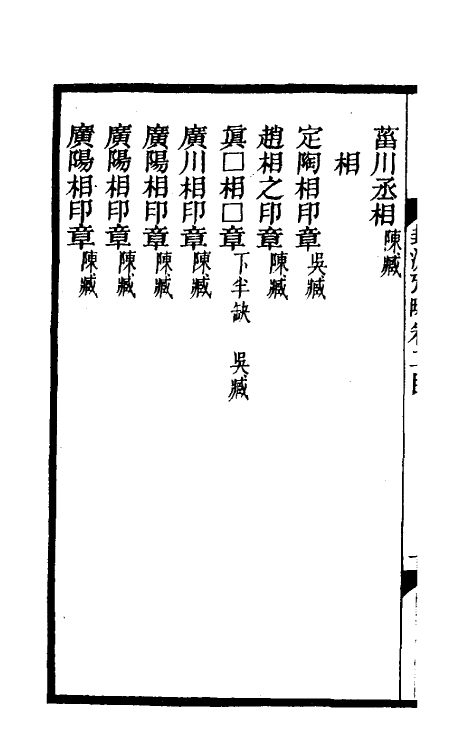 菑川丞相 陳臧
相
定陶相印章 吳臧
趙相之印章 陳臧
真□相□章 下半缺 吳臧
廣川相印章 陳臧
廣陽相印章 陳臧
廣陽相印章 陳臧
廣陽相印章 陳臧